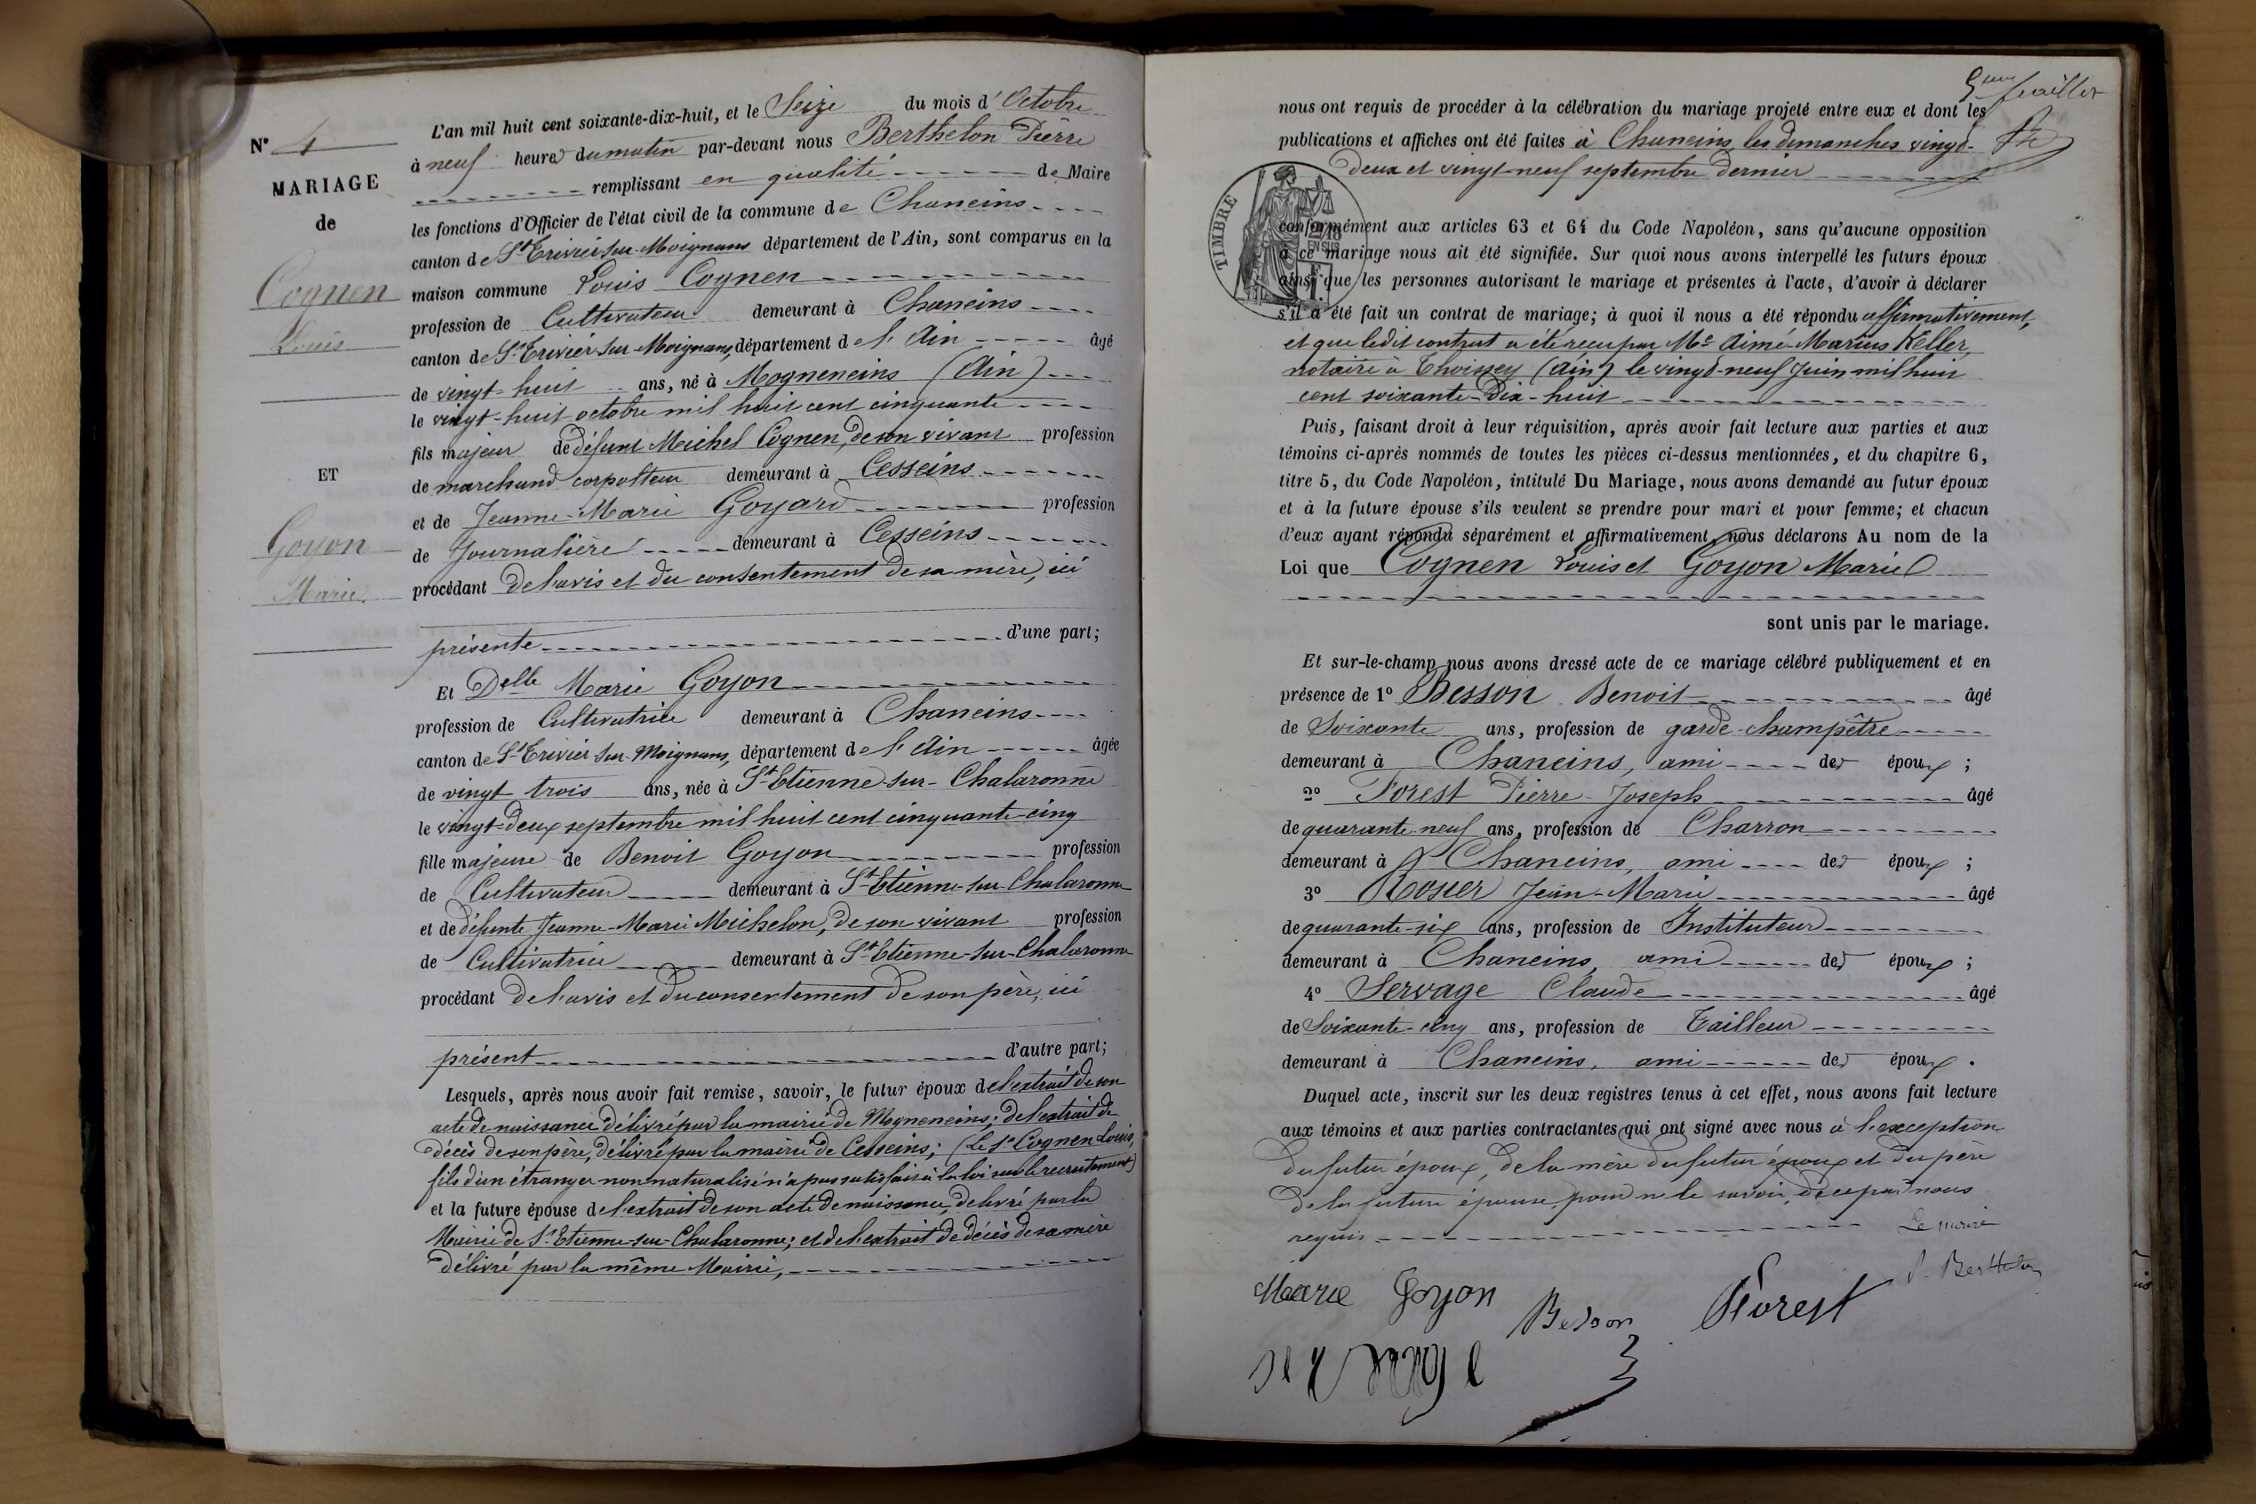 N° 4
MARIAGE
de
Cognen
Louis
ET
Goyon
Marie.
L'an mil huit cent soixante-dix-huit, et le Seize du mois d'Octobre
à neuf heures du matin par-devant nous Berthelon Pierre
remplissant en qualité de Maire
les fonctions d'Officier de l'état civil de la commune de Chaneins
canton de St Trivier sur Moignans département de l'Ain, sont comparus en la
maison commune Louis Cognen
profession de Cultivateur demeurant à Chaneins
canton de St Trivier sur Moignans, département de l'Ain âgé
de vingt-huit ans, né à Mogneneins (Ain)
le vingt-huit octobre mil huit cent cinquante
fils majeur de défunt Michel Cognen, de son vivant profession
de marchand corpolteur demeurant à Cesseins
et de Jeanne-Marie Goyard profession
de Journalière demeurant à Cesseins
procédant de l'avis et du consentement de sa mère, ici
présente d'une part;
Et Delle Marie Goyon
profession de Cultivatrice demeurant à Chaneins
canton de St Trivier sur Moignans, département de l'Ain âgée
de vingt trois ans, née à St Etienne-sur-Chalaronne
le vingt-deux septembre mil huit cent cinquante-cinq
fille majeure de Benoit Goyon profession
de Cultivateur demeurant à St Etienne-sur-Chalaronne
et de défunte Jeanne-Marie Michelon, de son vivant profession
de Cultivatrice demeurant à St Etienne-sur-Chalaronne
procédant de l'avis et du consentement de son père, ici
présent d'autre part;
Lesquels, après nous avoir fait remise, savoir, le futur époux de l'extrait de son
acte de naissance délivré par la mairie de Mogneneins; de l'extrait de
décès de son père, délivré par la mairie de Cesseins; (Le Sr Cognen Louis,
fils d'un étranger non naturalisé n'a pas satisfait à la loi sur le recrutement)
et la future épouse de l'extrait de son acte de naissance, délivré par la
Mairie de St Etienne-sur-Chalaronne; et de l'extrait de décès de sa mère
délivré par la même Mairie,
5eme feuillet
nous ont requis de procéder à la célébration du mariage projeté entre eux et dont les
publications et affiches ont été faites à Chaneins, les dimanches vingt-
deux et vingt-neuf septembre dernier
TIMBRE
EN SUS
conformément aux articles 63 et 64 du Code Napoléon, sans qu'aucune opposition
à ce mariage nous ait été signifiée. Sur quoi nous avons interpellé les futurs époux
ainsi que les personnes autorisant le mariage et présentes à l'acte, d'avoir à déclarer
s'il a été fait un contrat de mariage; à quoi il nous a été répondu affirmativement,
et que ledit contrat a été reçu par Me Aimé-Marius Keller,
notaire à Thoissey (Ain) le vingt-neuf Juin mil huit
cent soixante-dix-huit
Puis, faisant droit à leur réquisition, après avoir fait lecture aux parties et aux
témoins ci-après nommés de toutes les pièces ci-dessus mentionnées, et du chapitre 6,
titre 5, du Code Napoléon, intitulé Du Mariage, nous avons demandé au futur époux
et à la future épouse s'ils veulent se prendre pour mari et pour femme; et chacun
d'eux ayant répondu séparément et affirmativement, nous déclarons Au nom de la
Loi que Cognen Louis et Goyon Marie
sont unis par le mariage.
Et sur-le-champ nous avons dressé acte de ce mariage célébré publiquement et en
présence de 1° Besson Benoit âgé
de Soixante ans, profession de garde-champêtre
demeurant à Chaneins, ami des époux;
2° Forest Pierre-Joseph âgé
de quarante-neuf ans, profession de Charron
demeurant à Chaneins, ami des époux;
3° Rosier Jean-Marie âgé
de quarante-six ans, profession de Instituteur
demeurant à Chaneins, ami des époux;
4° Servage Claude âgé
de Soixante-cinq ans, profession de Tailleur
demeurant à Chaneins, ami des époux.
Duquel acte, inscrit sur les deux registres tenus à cet effet, nous avons fait lecture
aux témoins et aux parties contractantes qui ont signé avec nous à l'exception
du futur époux, de la mère du futur époux et du père
de la future épouse, pour ne le savoir, de ce par nous
requis
Le maire
P. Berthelon
Marie Goyon
Besson
Forest
servage